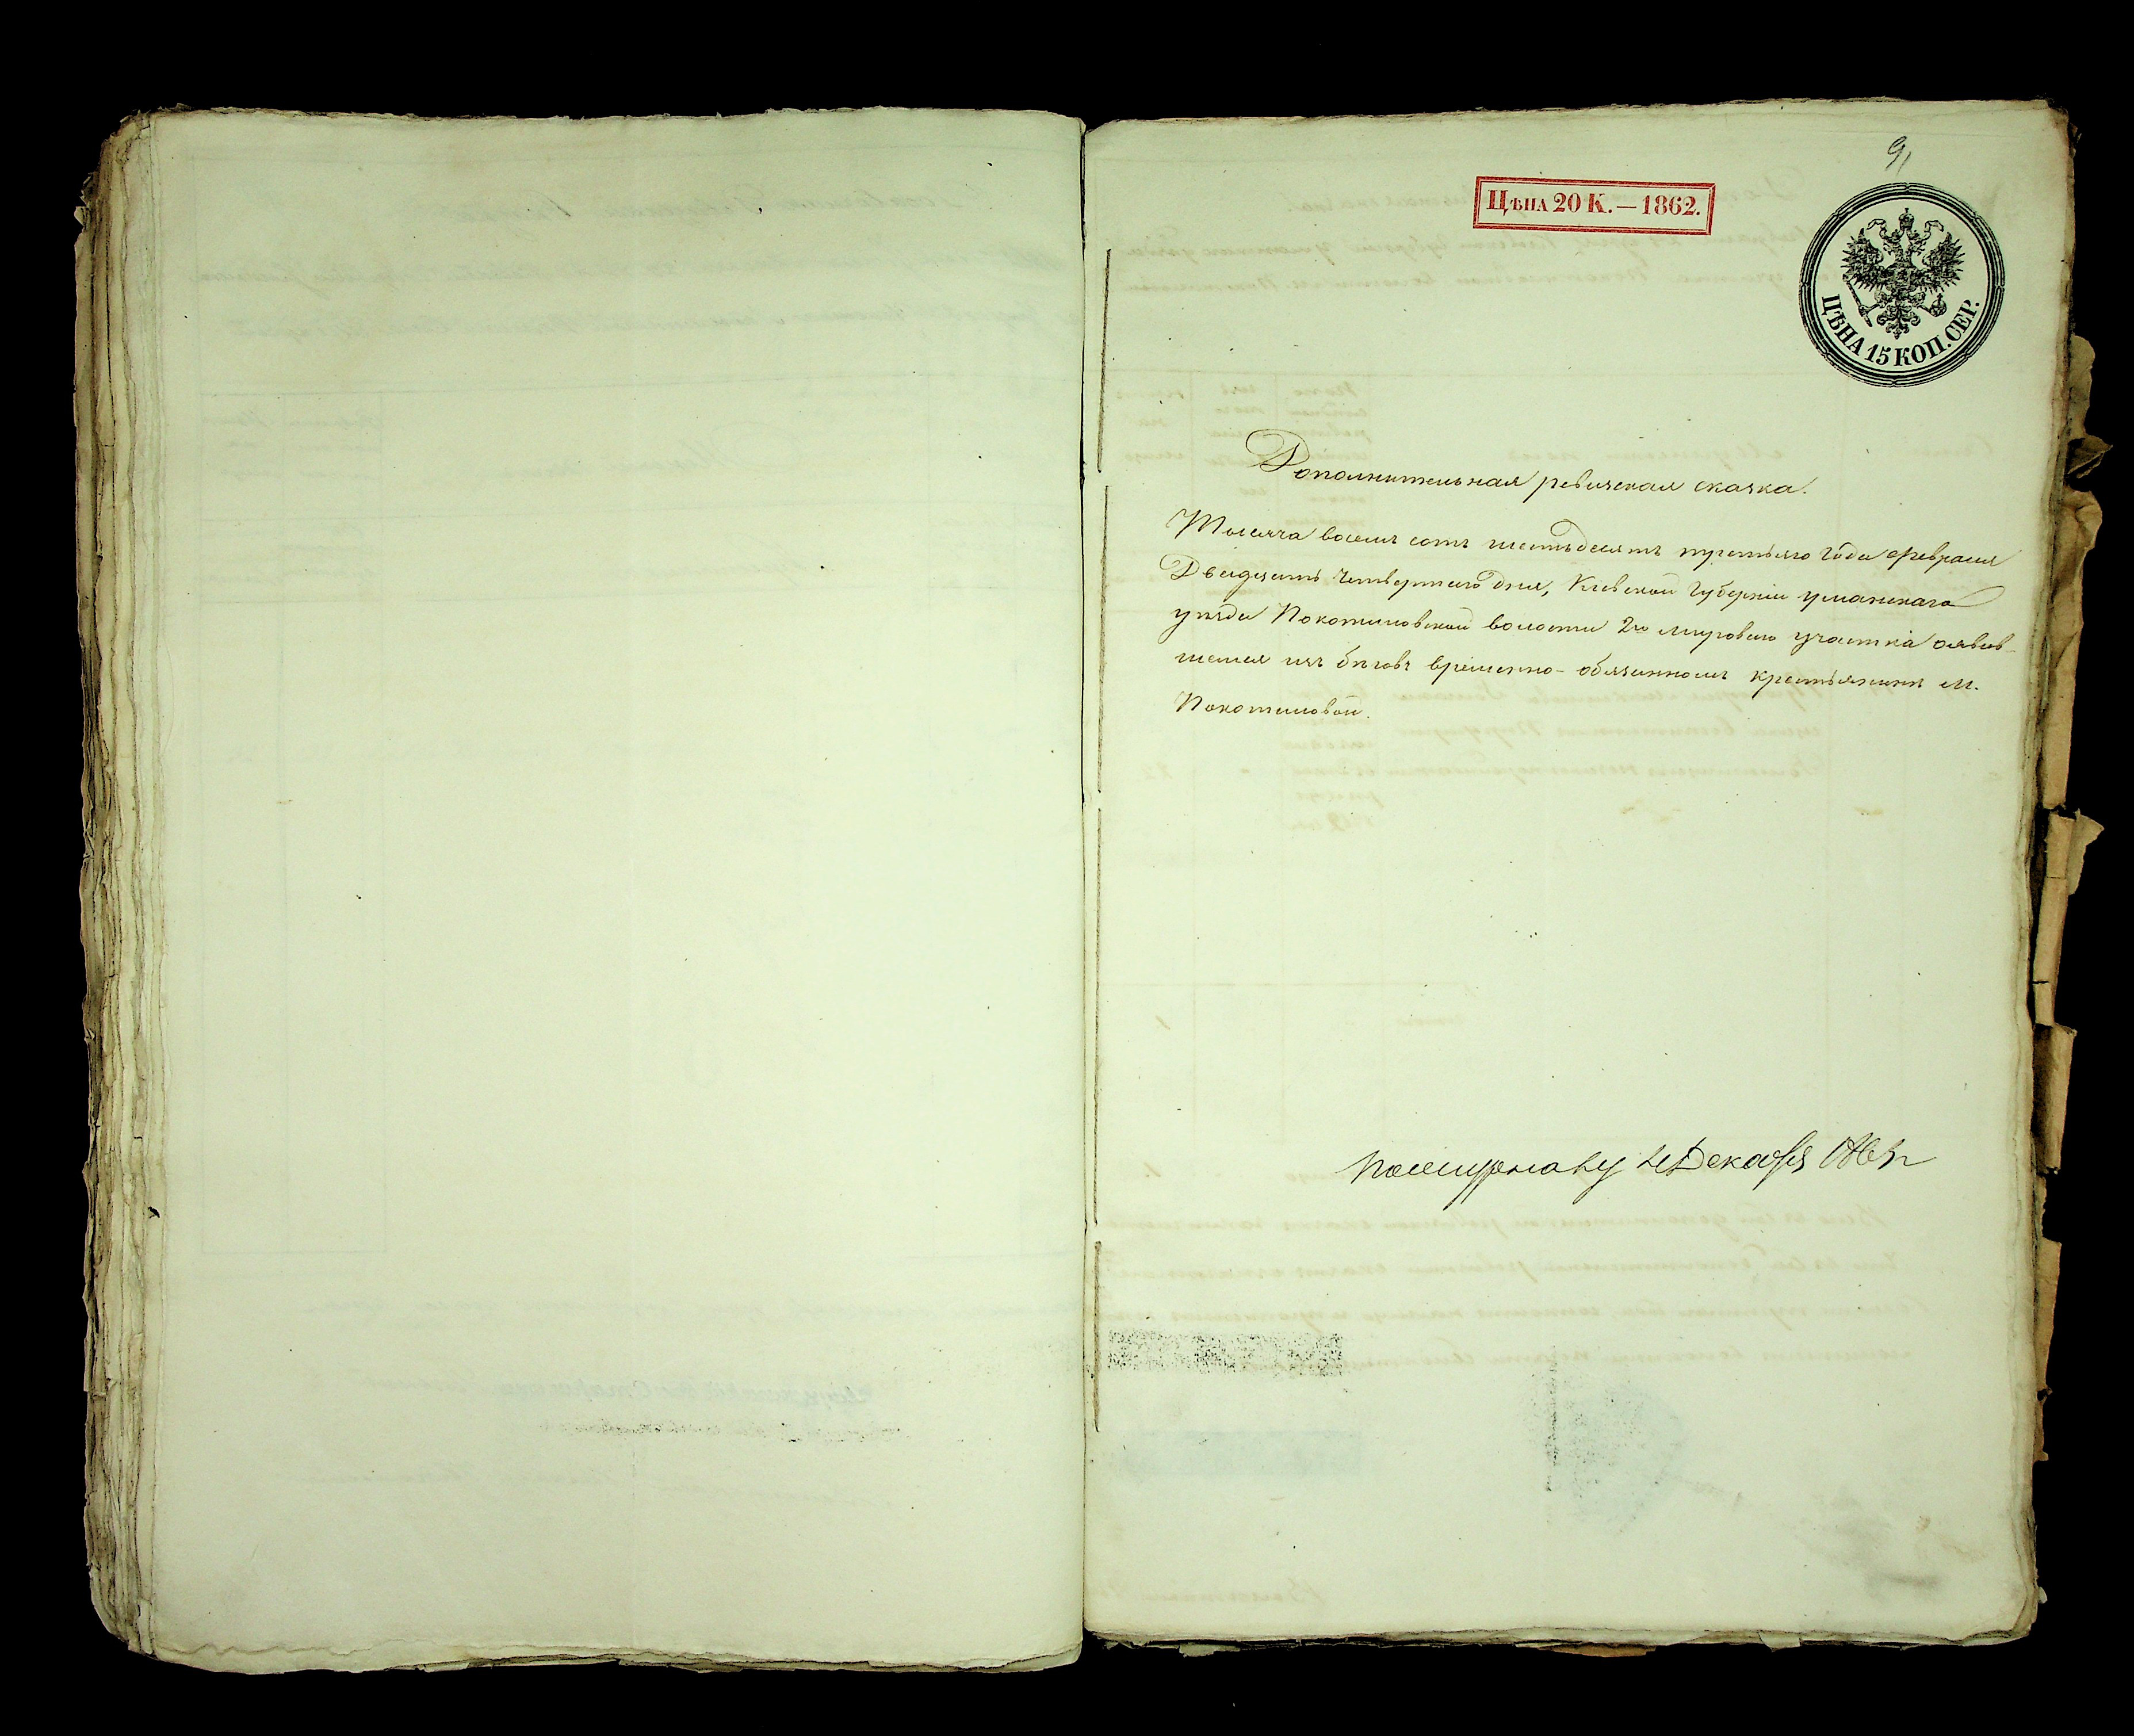 91
Цѣна 20 К. — 1862.
ЦѢНА 15 КОП. СЕР.
Дополнительная ревизская сказка.
Тысяча восемь сотъ шестьдесятъ третьяго года февраля
Двадцать четвертаго дня, Кіевской Губерніи уманскаго
уѣзда Покотиловской волости 2го мироваго участка о явив-
шемся изъ бѣговъ временно-обязанномъ крестьянинѣ м.
Покотиловой.
Декабря